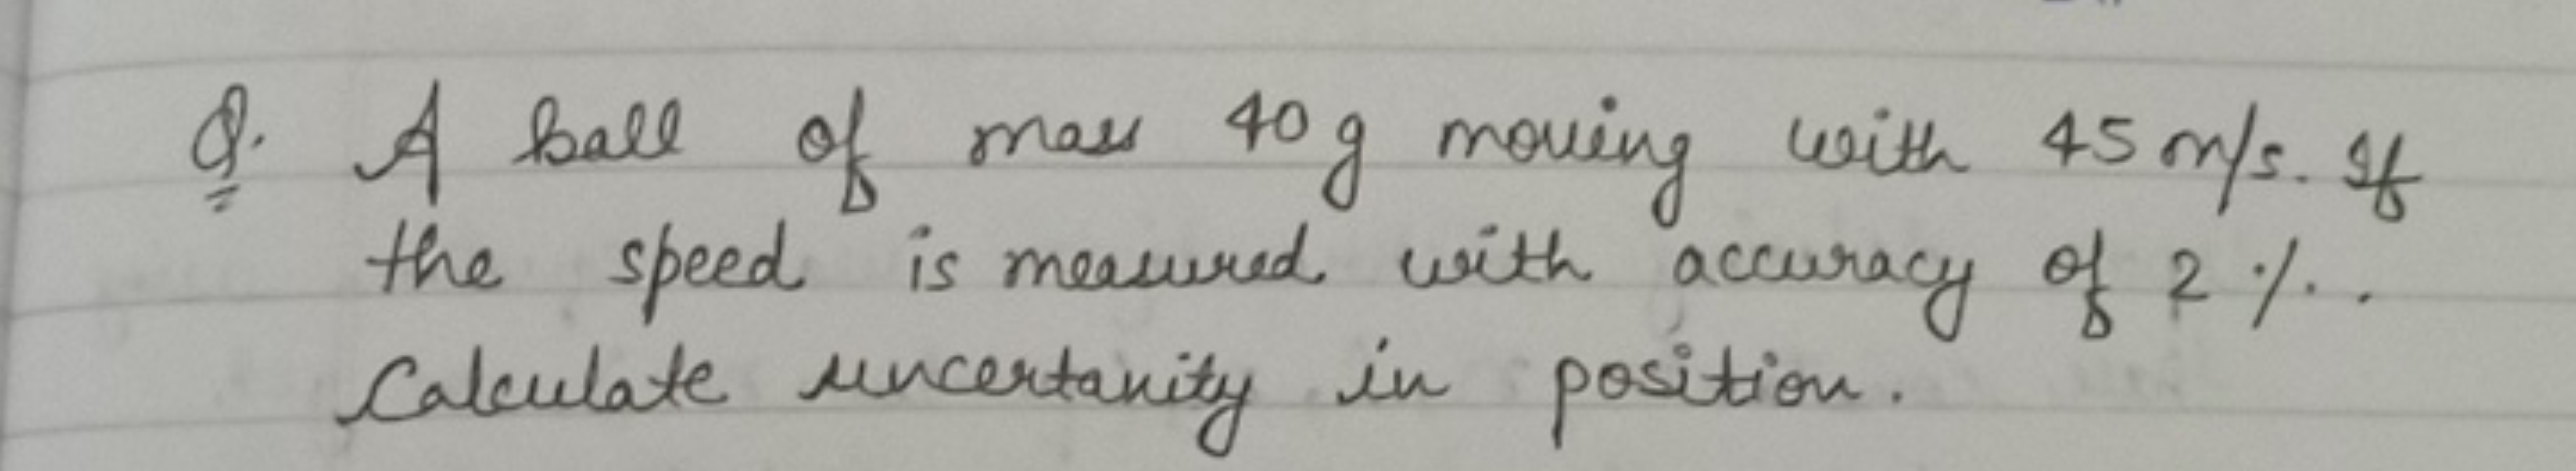 Q. A ball of mass 40 g moving with 45 m/s. If
the speed is measured with accuracy of 2 %.
Calculate uncertanity in position.